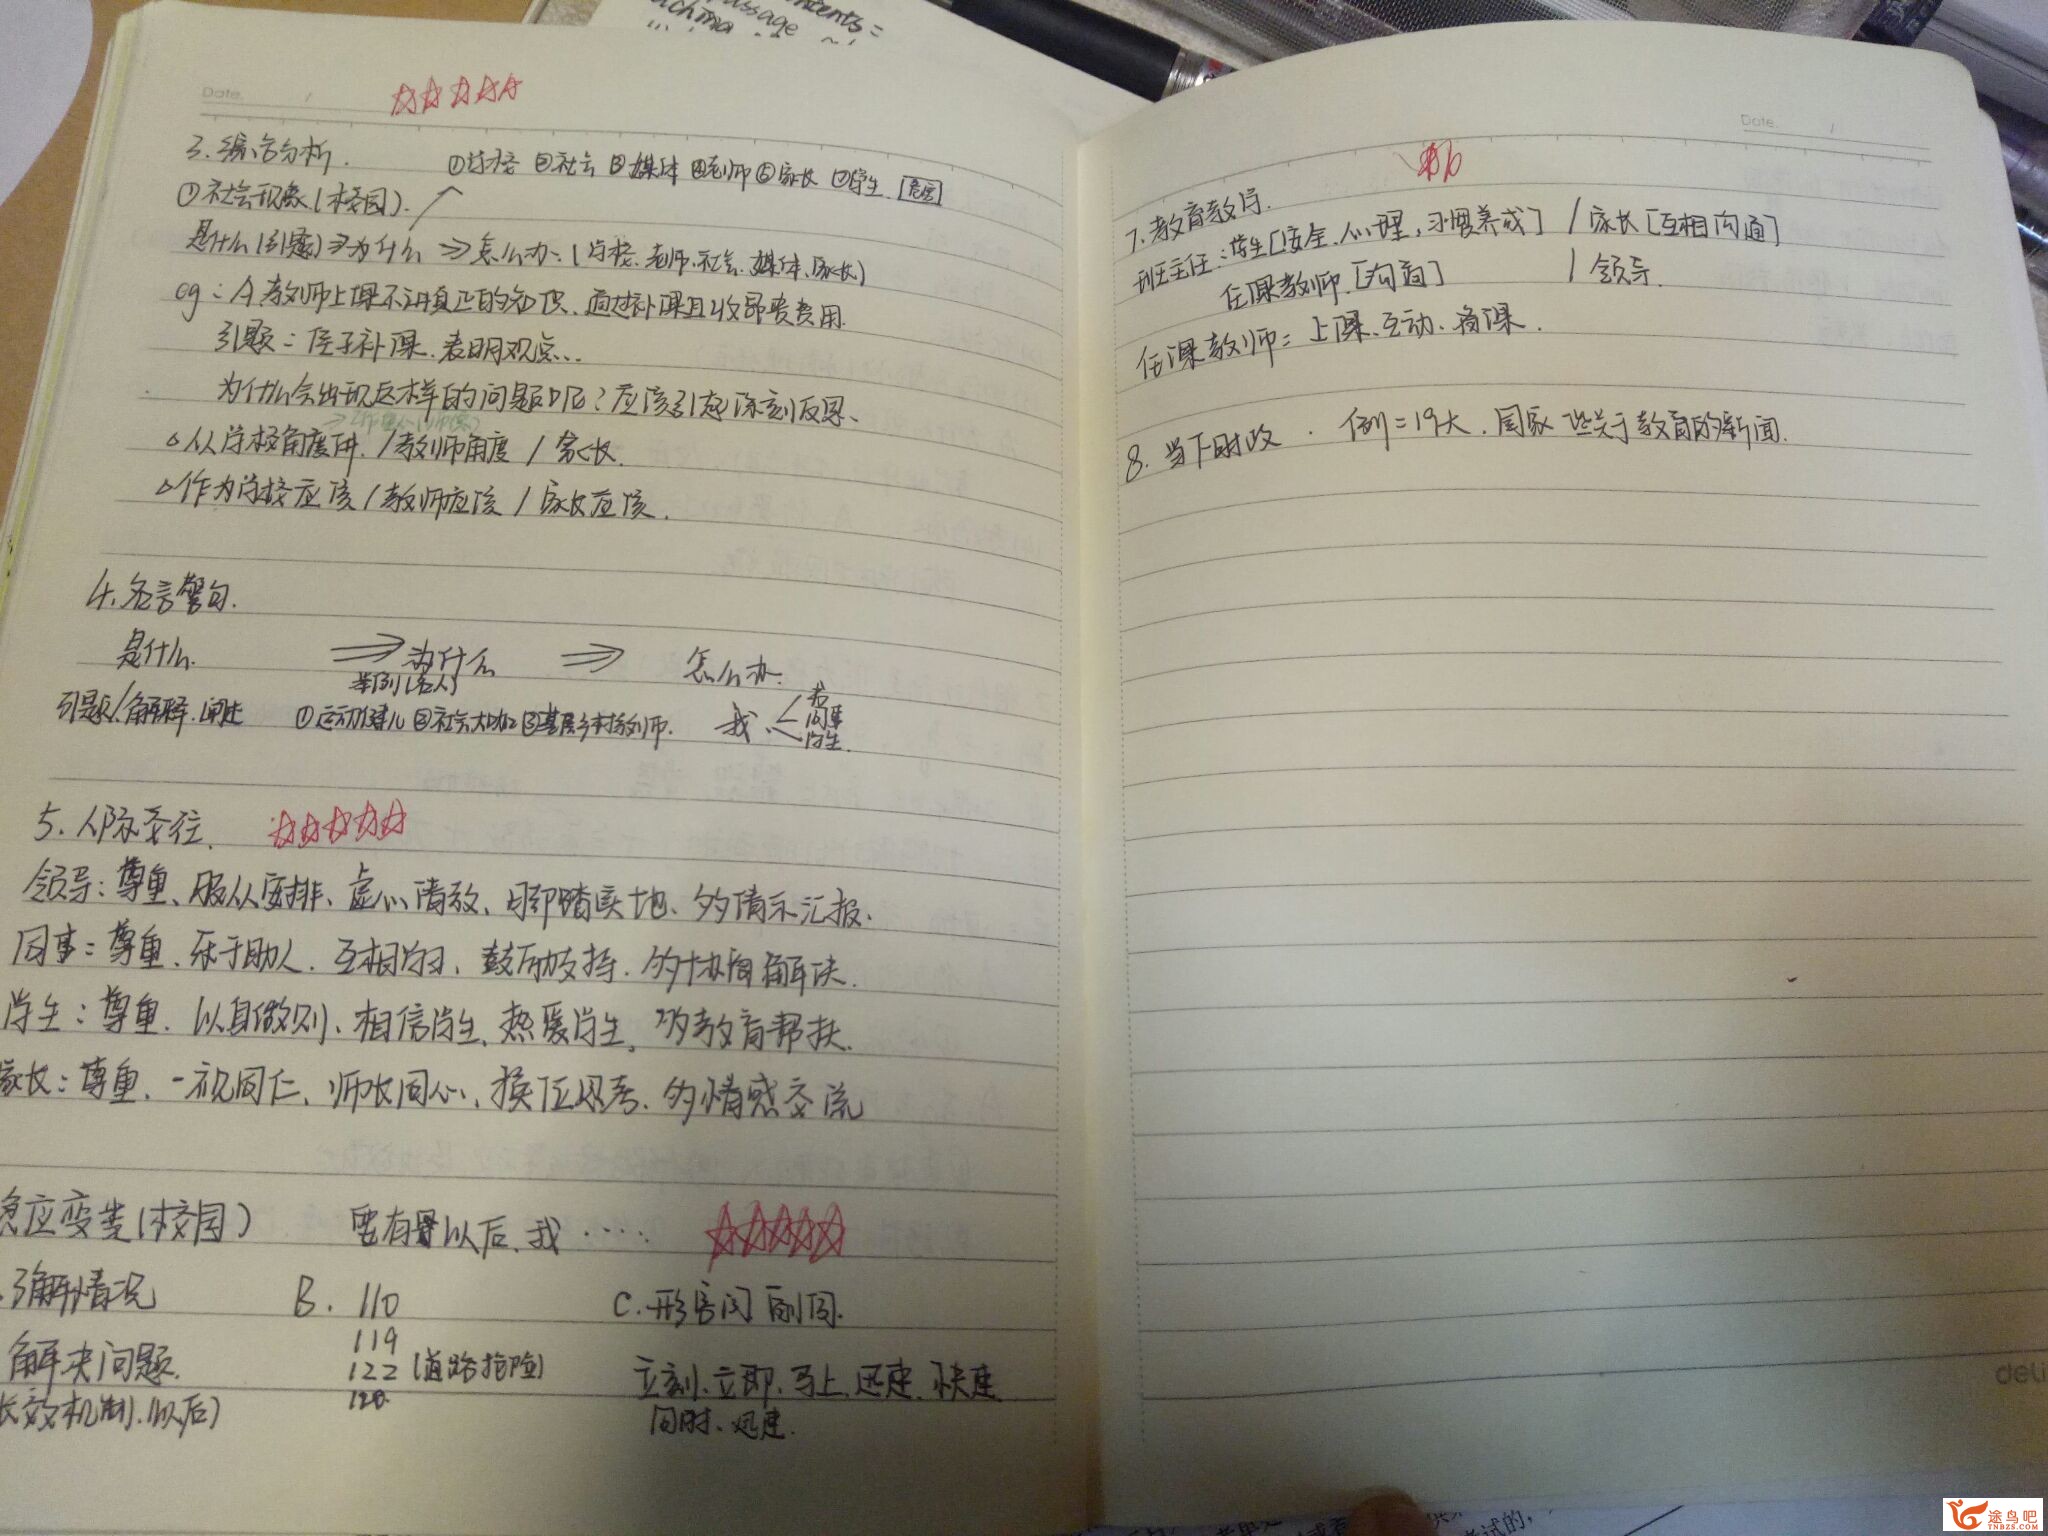 Date. /
3. 综合分析.
①学校 ②社会 ③媒体 ④老师 ⑤家长 ⑦学生.
①社会现象(校园).
是什么(引题)⇒为什么 ⇒ 怎么办:(学校.老师.社会.媒体.家长)
eg: A教师上课不讲真正的知识、通过补课且收昂贵费用.
引题:侄子补课.表明观点...
为什么会出现这样的问题呢?应该引起深刻反思、
从学校角度讲./教师角度/家长.
作为学校应该/教师应该/家长应该.
4.名言警句.
是什么. ⇒ 为什么 ⇒ 怎么办.
举例(名人)
引题/解释.阐述 ①运动健儿 ②社会大咖 ③基层乡村教师. 我 < 同事 学生.
5. 人际交往.
领导:尊重、服从安排、虚心请教、脚踏实地、多请示汇报.
同事:尊重.乐于助人.互相学习、鼓励支持.多协商解决.
学生:尊重.以身做则、相信学生、热爱学生,多教育帮扶.
家长:尊重.一视同仁、师长同心、换位思考.多情感交流
应变类(校园) 以后、我 .....
了解情况 B. 110 C.
119
解决问题. 122 (道路抢险) 立刻、立即、马上、迅速、快速
长效机制.(以后) 120. 同时、迅速.
Date. /
7.教育教学.
班主任:学生[安全.心理,习惯养成] /家长[互相沟通]
任课教师.[沟通] /领导.
任课教师:上课、互动、备课.
8. 当下时政. 例=19大.国家一些关于教育的新闻.
deli
途鸟吧
TNBZS.COM